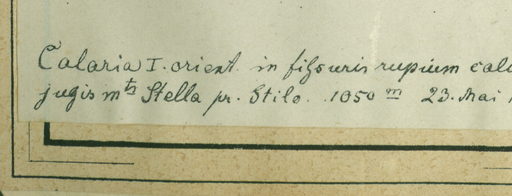 Calaria I. orient. in fißuris rupium calc
jugis mts Stella pr. Stilo. 1050 m 23. Mai 1